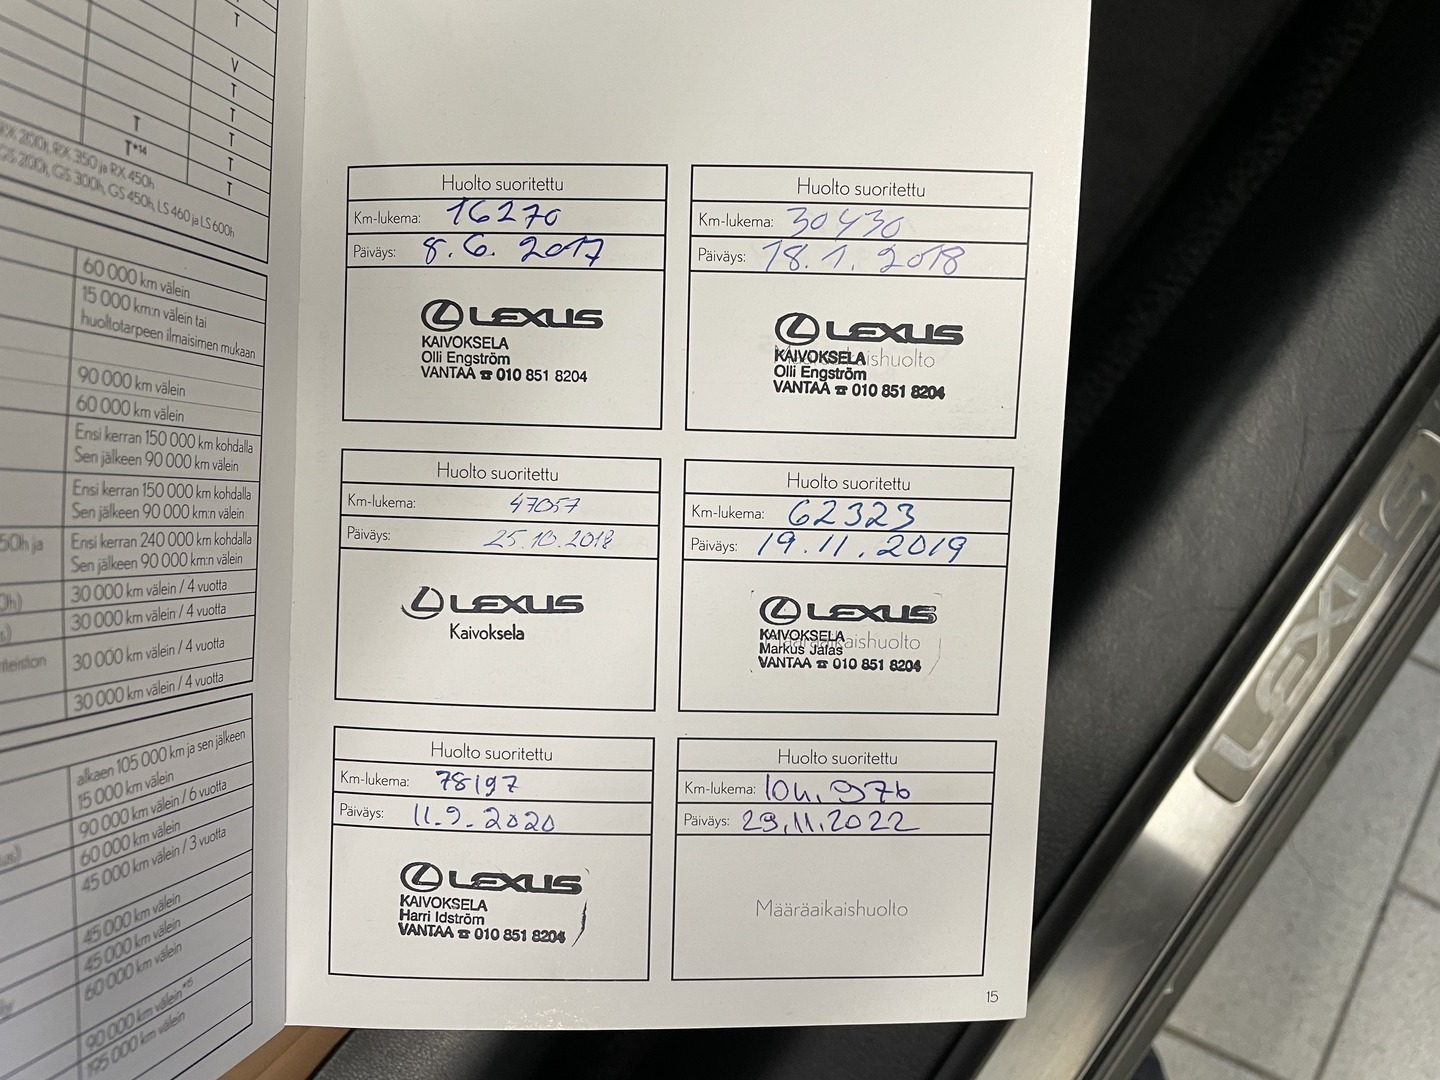 T
V
T
T
T
T
T
T
T*14
RX 200t, RX 350 ja RX 450h
GS 200t, GS 300h, GS 450h, LS 460 ja LS 600h
60 000 km välein
15 000 km:n välein tai
huoltotarpeen ilmaisimen mukaan
90 000 km välein
60 000 km välein
Ensi kerran 150 000 km kohdalla
Sen jälkeen 90 000 km välein
Ensi kerran 150 000 km kohdalla
Sen jälkeen 90 000 km:n välein
50h ja
Ensi kerran 240 000 km kohdalla
Sen jälkeen 90 000 km:n välein
30 000 km välein / 4 vuotta
30 000 km välein / 4 vuotta
30 000 km välein / 4 vuotta
30 000 km välein / 4 vuotta
alkaen 105 000 km ja sen jälkeen
15 000 km välein
90 000 km välein / 6 vuotta
60 000 km välein
45 000 km välein / 3 vuotta
45 000 km välein
45 000 km välein
60 000 km välein
90 000 km välein*15
195 000 km välein
Huolto suoritettu
Km-lukema: 16270
Päiväys: 8.6. 2017
LEXUS
KAIVOKSELA
Olli Engström
VANTAA ☎ 010 851 8204
Huolto suoritettu
Km-lukema: 30430
Päiväys: 18.1. 2018
LEXUS
KAIVOKSELA
Olli Engström
VANTAA ☎ 010 851 8204
Huolto suoritettu
Km-lukema: 47057
Päiväys: 25.10.2018
LEXUS
Kaivoksela
Huolto suoritettu
Km-lukema: 62323
Päiväys: 19.11.2019
LEXUS
KAIVOKSELA
Markus Jafas
VANTAA ☎ 010 851 8204
Huolto suoritettu
Km-lukema: 78197
Päiväys: 11.9.2020
LEXUS
KAIVOKSELA
Harri Idström
VANTAA ☎ 010 851 8204
Huolto suoritettu
Km-lukema: 104.976
Päiväys: 29.11.2022
Määräaikaishuolto
15
LEXUS